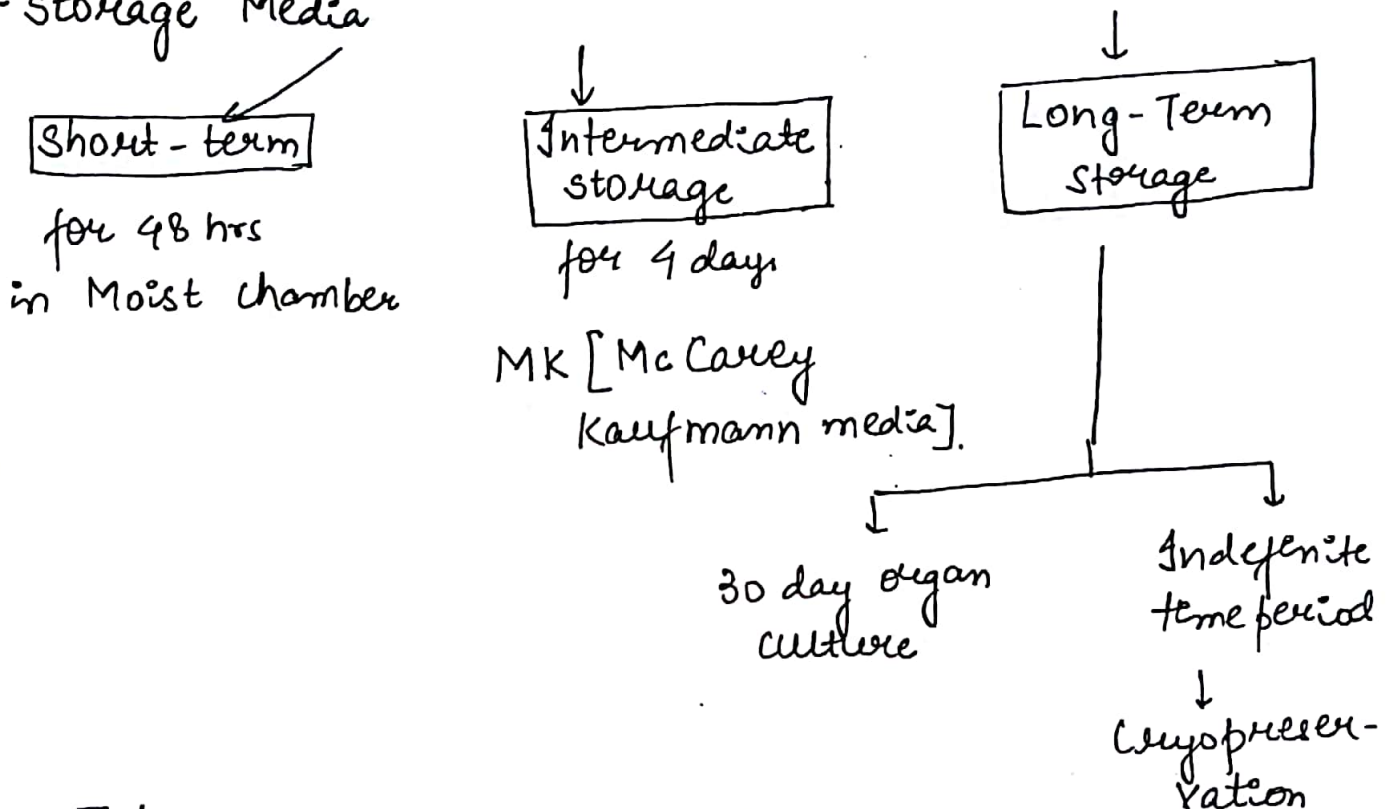 Storage Media
Short-term
for 48 hrs
in Moist chamber
Intermediate
storage
for 4 days
MK [Mc Carey
Kaufmann media].
Long-Term
storage
30 day organ
culture
Indefenite
time period
Cryopreser-
vation